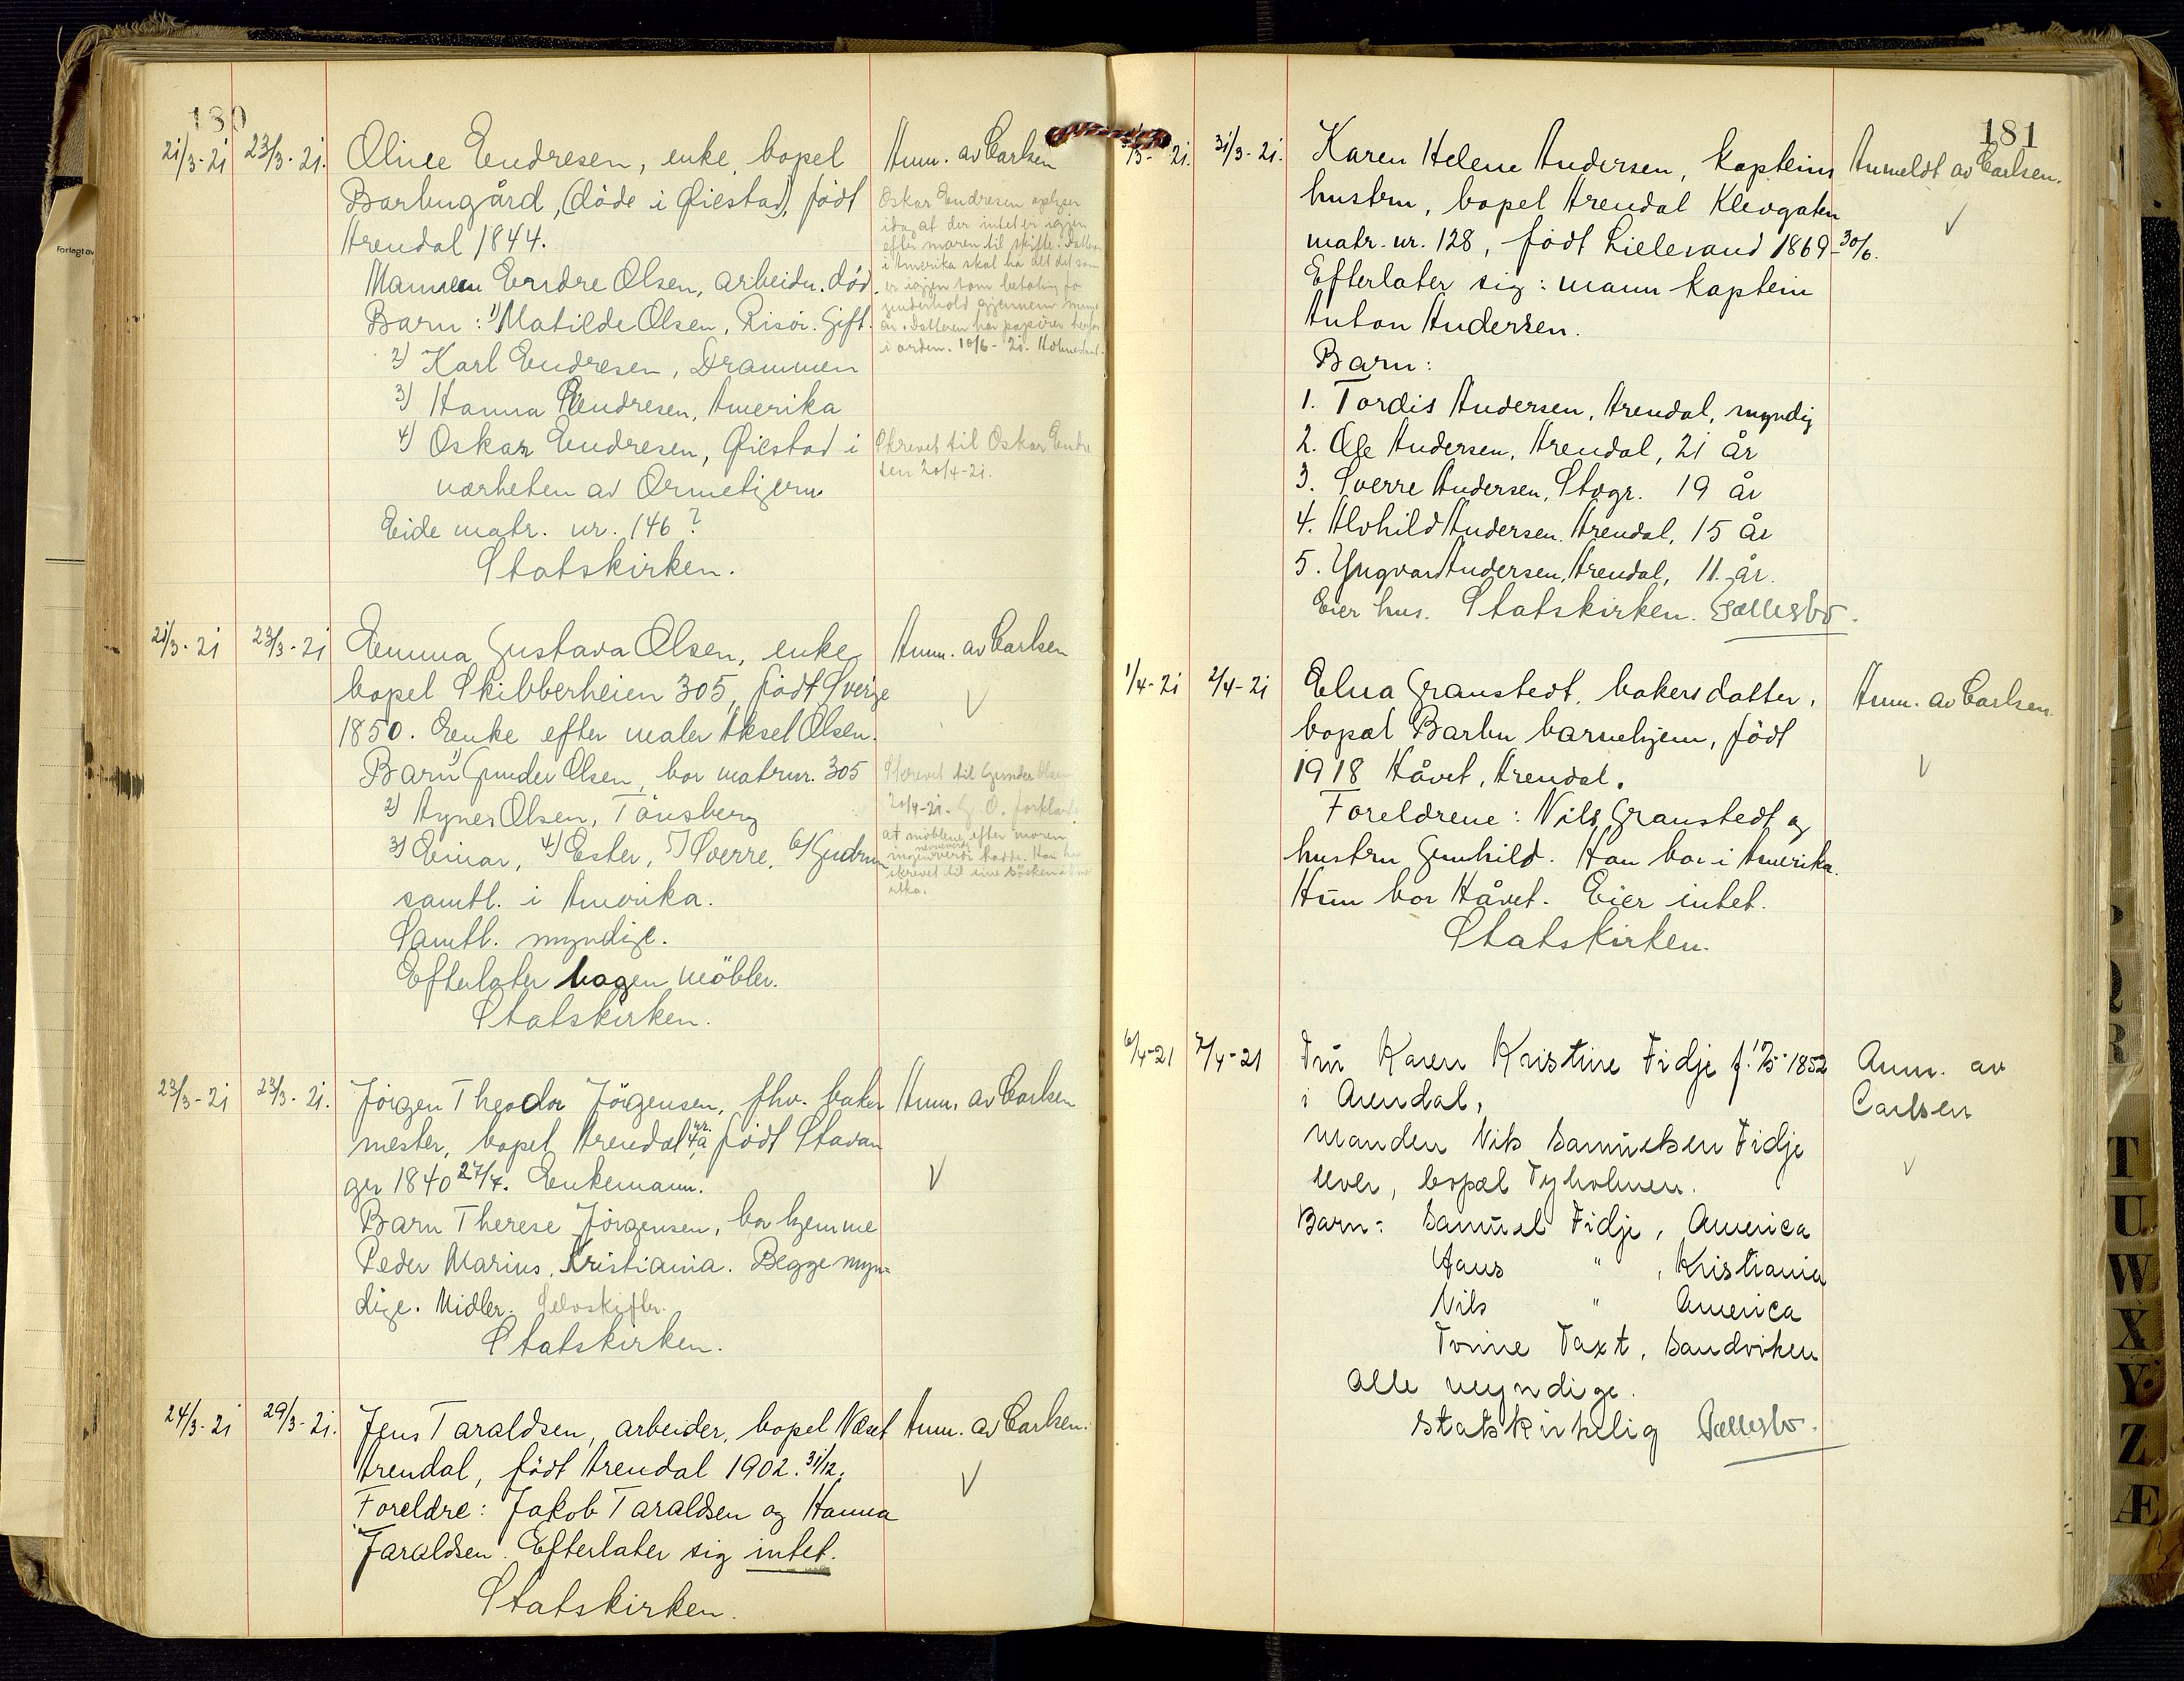 180
21/3-21 23/3-21. Oline Endresen, enke, bopel Anm. av Carlsen
Barbugård, (döde i Öiestad), födt
Arendal 1844.
Mannen Endre Olsen, arbeider. död.
Barn: 1) Matilde Olsen, Risör. Gift.
2) Karl Endresen, Drammen
3) Hanna Endresen, Amerika
4) Oskar Endresen, Öiestad i
nærheten av Ormetjern.
Eide matr. nr. 146?
Statskirken.
Oskar Endresen oplyser
idag at der intet er igjen
efter moren til skifte. Datteren
i Amerika skal ha alt det som
er igjen som betaling for
underhold gjennem mange
år. Datteren har papirer herfor
i orden. 10/6-21.
Skrevet til Oskar Endre
sen 20/4-21.
21/3-21 23/3-21 Emma Gustava Olsen, enke Anm. av Carlsen
bopel Skibberheien 305, födt Sverige
1850. Enke efter maler Aksel Olsen.
Barn 1) Gunder Olsen, bor matrnr. 305
2) Agnes Olsen, Tönsberg
3) Einar, 4) Ester, 5) Sverre, 6) Gudrun
samtl. i Amerika.
Samtl. myndige.
Efterlater bagen möbler.
Statskirken.
Skrevet til Gunder Olsen
20/4-21. G. O. forklarte
at möblene efter moren
nevneverdi
ingen verdi hadde. Han har
skrevet til sine sösken i Ame
rika.
23/3-21 23/3-21. Jörgen Theodor Jörgensen, fhv. baker Anm. av Carlsen
mester, bopel Arendal nr. 4a, födt Stavan
ger 1840 27/4. Enkemann.
Barn Therese Jörgensen, bor hjemme
Peder Marius, Kristiania. Begge myn-
dige. Midler. Selvskifter.
Statskirken.
24/3-21 29/3-21. Jens Taraldsen, arbeider, bopel Næset Anm. av Carlsen.
Arendal, födt Arendal 1902. 31/12.
Foreldre: Jakob Taraldsen og Hanna
Taraldsen. Efterlater sig intet.
Statskirken.
181
/3-21. 31/3-21. Karen Helene Andersen, kapteins Anmeldt av Carlsen.
hustru, bopel Arendal Klevgaten
matr. nr. 128, födt Lillesand 1869-30/6.
Efterlater sig: mann kaptein
Anton Andersen.
Barn:
1. Tordis Andersen, Arendal, myndig
2. Åge Andersen, Arendal, 21 år
3. Sverre Andersen, Stvgr. 19 år
4. Alvhild Andersen, Arendal, 15 år
5. Yngvar Andersen, Arendal, 11 år.
Eier hus. Statskirken. Fællesbo.
1/4-21 2/4-21 Elna Granstedt, bakers datter, Anm. av Carlsen.
bopæl Barbu barnehjem, födt
1918 Håvet, Arendal.
Foreldrene: Nils Granstedt og
hustru Gunhild. Han bor i Amerika.
Hun bor Håvet. Eier intet.
Statskirken.
6/4-21 7/4-21 Fru Karen Kristine Fidje f. 17/5-1852 Anm. av
i Arendal, Carlsen
manden Nils Samuelsen Fidje
lever, bopæl Tyholmen.
Barn: Samuel Fidje, America
Hans " , Kristiania
Nils " America
Tonne Taxt, Sandviken
Alle myndige.
Statskirkelig Fællesbo.
Forlagt av
P
Q
R
T
U
W
X
Y
Z
Æ